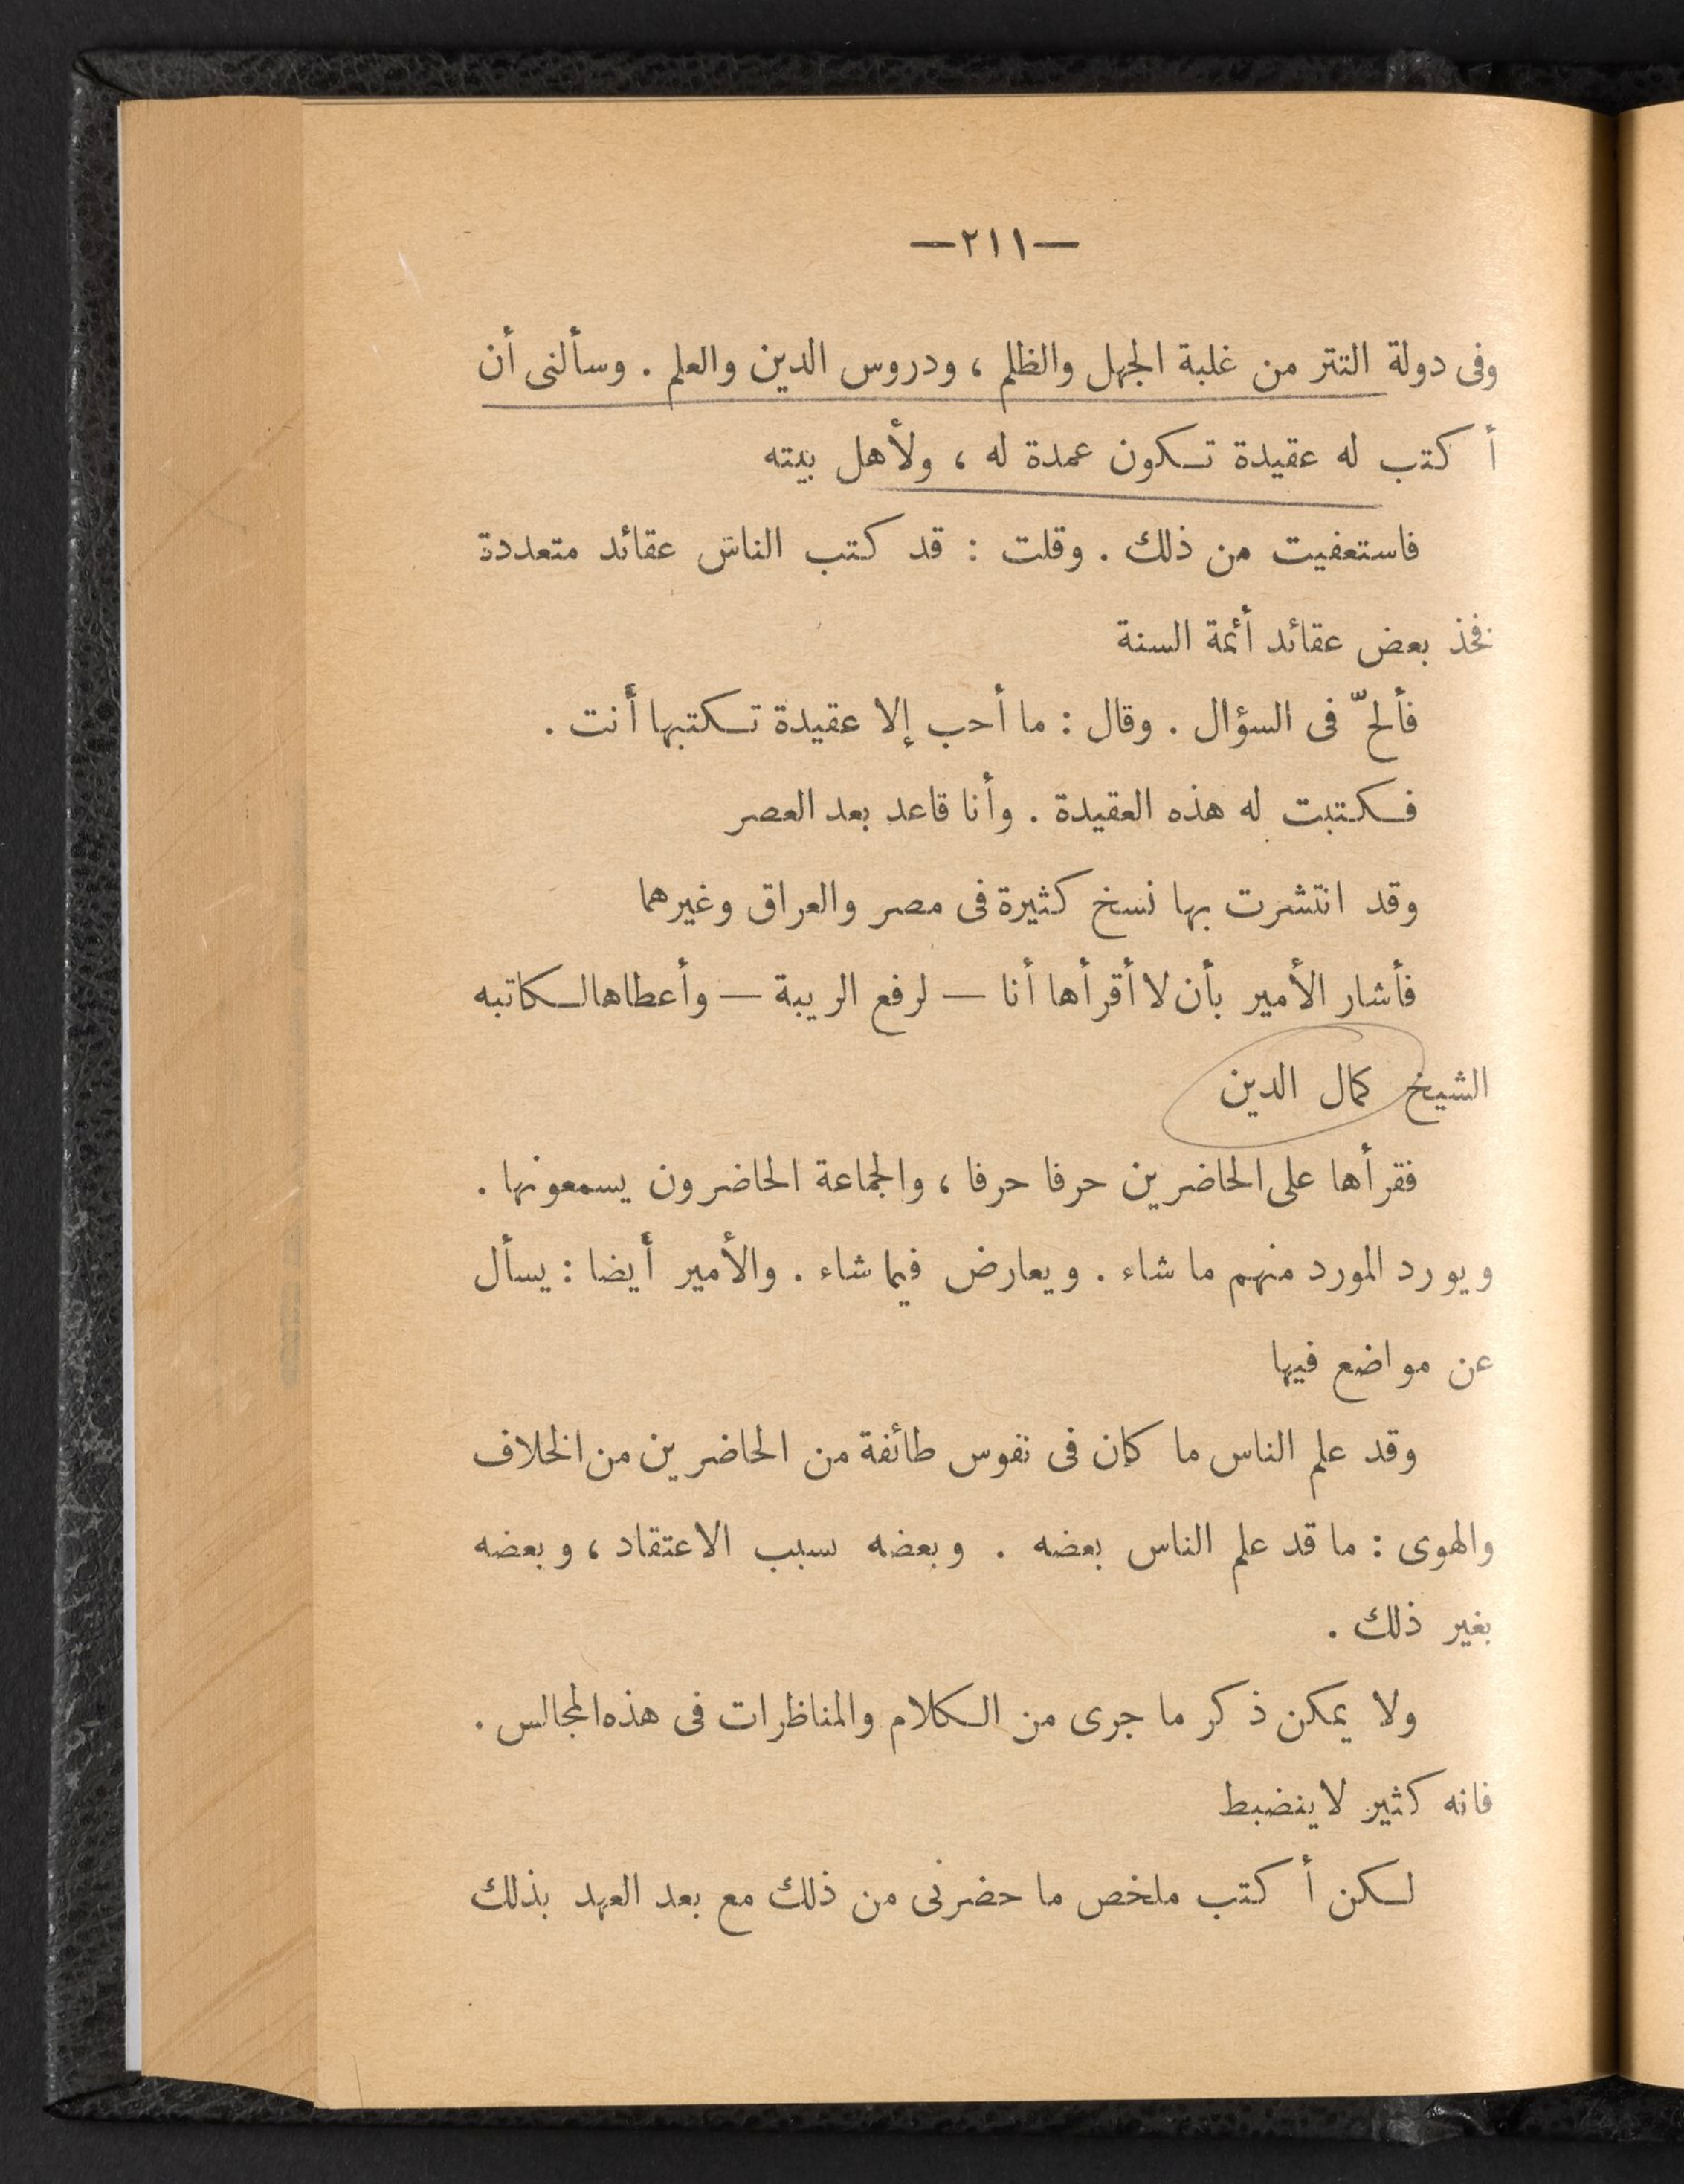 —٢١١—
وفى دولة التتر من غلبة الجهل والظلم ، ودروس الدين والعلم . وسألنى أن
أكتب له عقيدة تكون عمدة له ، ولأهل بيته
فاستعفيت من ذلك . وقلت : قد كتب الناس عقائد متعددة
فخذ بعض عقائد أئمة السنة
فألحّ فى السؤال . وقال : ما أحب إلا عقيدة تكتبها أنت .
فكتبت له هذه العقيدة . وأنا قاعد بعد العصر
وقد انتشرت بها نسخ كثيرة فى مصر والعراق وغيرهما
فأشار الأمير بأن لا أقرأها أنا — لرفع الريبة — وأعطاها لكاتبه
الشيخ كمال الدين
فقرأها على الحاضرين حرفا حرفا ، والجماعة الحاضرون يسمعونها .
ويورد المورد منهم ما شاء . ويعارض فيما شاء . والأمير أيضا : يسأل
عن مواضع فيها
وقد علم الناس ما كان فى نفوس طائفة من الحاضرين من الخلاف
والهوى : ما قد علم الناس بعضه . وبعضه سبب الاعتقاد ، وبعضه
بغير ذلك .
ولا يمكن ذكر ما جرى من الكلام والمناظرات فى هذه المجالس .
فانه كثير لا ينضبط
لكن أكتب ملخص ما حضرنى من ذلك مع بعد العهد بذلك